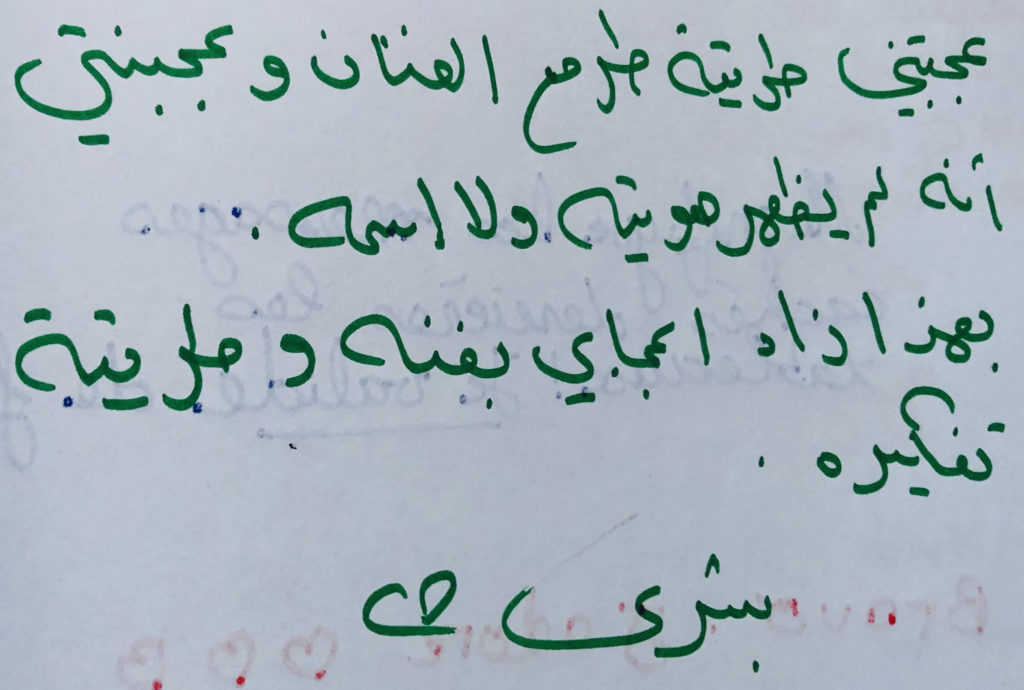 عجبتني طريقة طرح الفنان و عجبني
أنه لم يظهر هويته ولا اسمه .
بهذا زاد اعجابي بفنه و طريقة
تفكيره .
بشرى